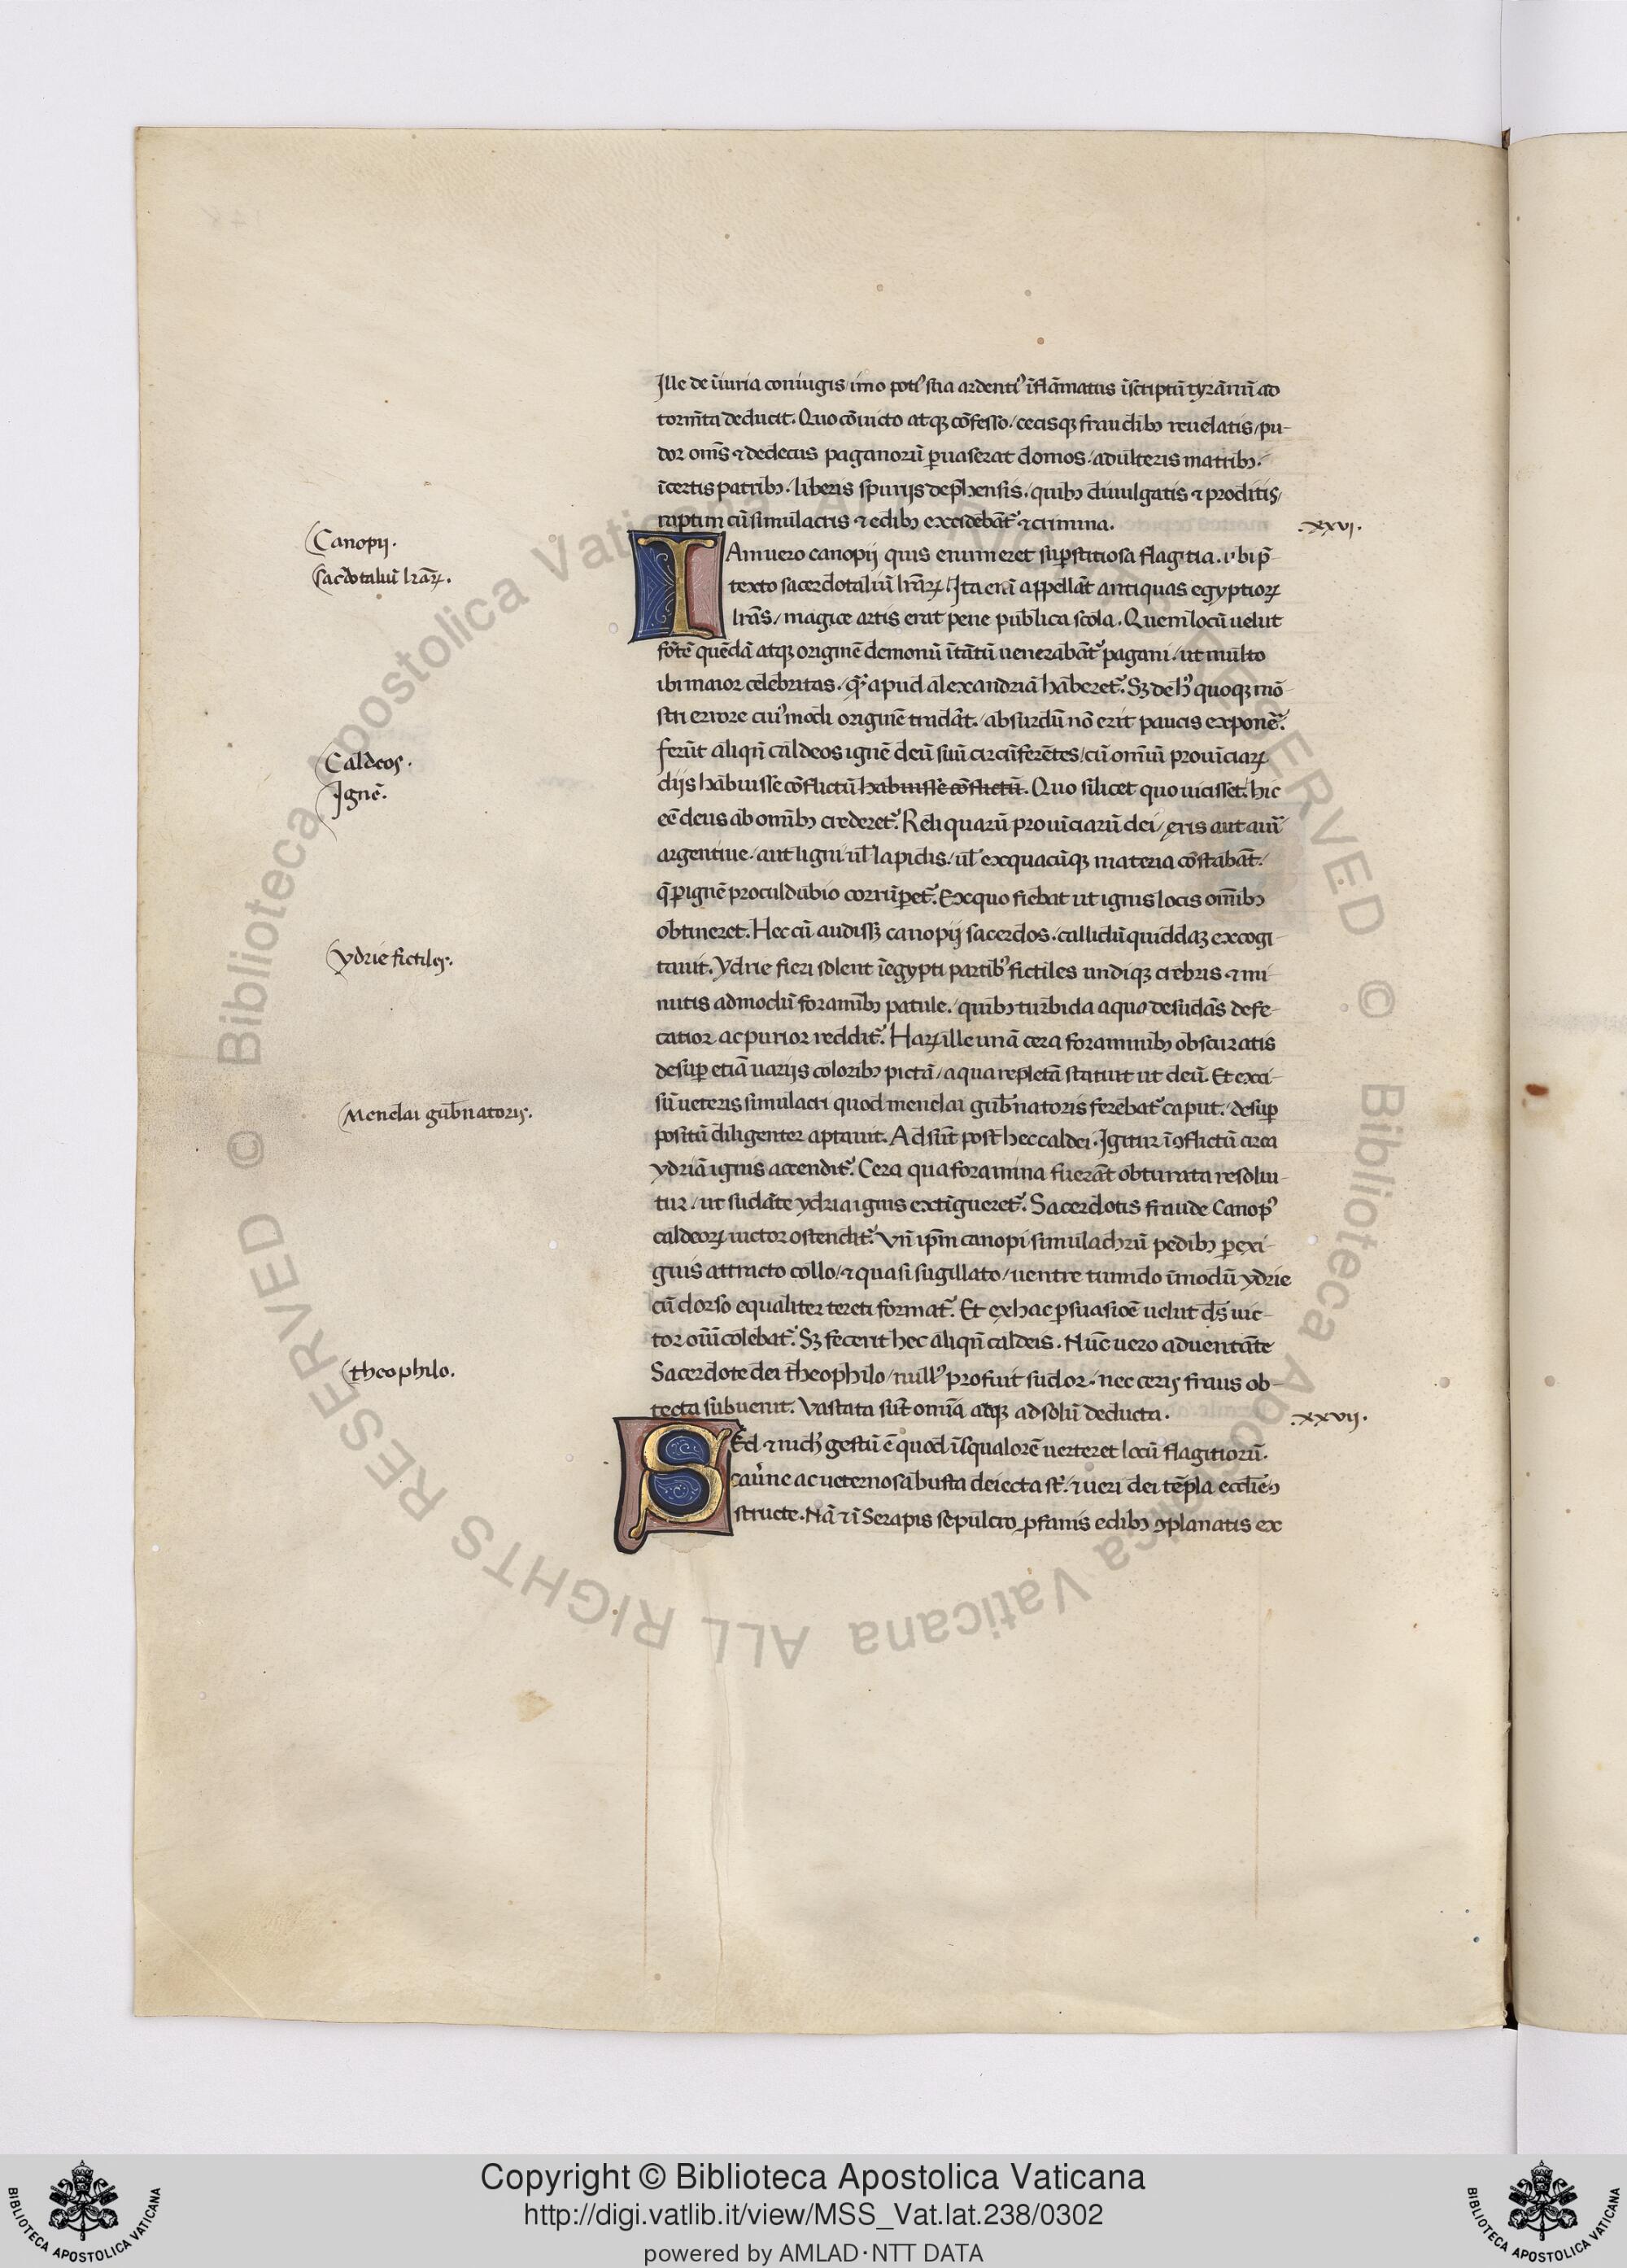 Ille de īiuria coniugis / imo potiꝰ sua ardentiꝰ īflāmatus īscriptū tyrānū ad
torm̄ta deducit. Quo cōuicto atqꝫ cōfesso / cecisqꝫ fraudibꝫ reuelatis / pu-
dor om̄s ⁊ dedecus paganorū ꝑuaserat domos / adulteris matribꝫ /
īcertis patribꝫ / liberis spurijs dep̄hensis / quibꝫ diuulgatis ⁊ proditis /
raptim cū simulacris ⁊ edibꝫ excidebāt᷑ ⁊ crimina.
.xxvi.
Canopij.
sac̄dotaliū lr̄aꝝ.
IAm uero canopij quis enumeret suꝑstitiosa flagitia. vbi p̄
texto sacerdotaliū lr̄aꝝ / Ita eni appellāt antiquas egyptioꝝ
lr̄as / magice artis erat pene publica scola. Quem locū uelut
fōtē quēdā atqꝫ originē demonū ītātū uenerabāt᷑ pagani / ut multo
ibi maior celebritas / q̄ꝫ apud alexandriā haberet᷑. Sꝫ de hꝰ quoqꝫ mō-
stri errore cuiꝰmodi originē tradāt / absurdū nō erit paucis exponē᷑.
Caldeos.
Ignē.
ferūt aliqn̄ caldeos ignē deū suū circūferētes / cū omniū prouīciaꝝ
dijs habuisse cōflictū habuisse cōflictū. Quo silicet quo uicisset / hic
eē deus ab omībꝫ crederet᷑. Reliquarū prouīciarū dei / ęris aut auri
argentiue / aut ligni ul̄ lapidis / ul̄ exquacūqꝫ materia cōstabāt /
q̄ ꝑ ignē proculdubio corrūꝑet᷑. Ex quo fiebat ut ignis locis om̄ibꝫ
obtineret. Hec cū audissꝫ canopij sacerdos / callidū quiddaꝫ excogi-
ydrie fictiles.
tauit. Ydrie fieri solent ī egypti partibꝰ fictiles undiqꝫ crebris ⁊ mi-
nutis admodū foramībꝫ patule / quibꝫ turbida aqua desudās defe-
catior ac purior reddit᷑. Haꝝ ille unā cera foraminibꝫ obscuratis
desuꝑ etiā uarijs coloribꝫ pictā / aqua repletā statuit ut deū. Et exci-
Menelai gub̄natoris.
sū ueteris simulacri quod menelai gub̄natoris ferebat᷑ caput / desuꝑ
positū diligenter aptauit. Adsūt post hec caldei. Igitur ī ꝯflictū circa
ydriā ignis accendit᷑. Cera qua foramina fuerāt obturata resolui-
tur / ut sudāte ydria ignis extīgueret᷑. Sacerdotis fraude Canopꝰ
caldeoꝝ uictor ostendit᷑. Vn̄ ip̄m canopi simulachrū pedibꝫ ꝑexi-
guis attracto collo / ⁊ quasi sugillato / uentre tumido īmodū ydrie
cū dorso equaliter tereti format᷑. Et ex hac ꝑsuasiōē uelut ds̄ uic-
tor oīū colebat᷑. Sꝫ fecerit hec aliqn̄ caldeis. Nūc uero aduentāte
theophilo.
Sacerdote dei theophilo / nullꝰ profuit sudor / nec ceris fraus ob-
tecta subuenit. Vastata sūt omīa atqꝫ ad solū deducta.
.xxvii.
SEd ⁊ nichꝰ gestū ē quod ī squalorē uerteret locū flagitiorū.
cauˀne ac ueternosa busta deiecta st̄ / ⁊ ueri dei tēpla ecclīeꝫ
structe. Nā ⁊ ī Serapis sepulcro ꝓfanis edibꝫ ꝯplanatis ex
© Biblioteca Apostolica Vaticana ALL RIGHTS RESERVED © Biblioteca Apostolica Vaticana ALL RIGHTS RESERVED
Copyright © Biblioteca Apostolica Vaticana
http://digi.vatlib.it/view/MSS_Vat.lat.238/0302
powered by AMLAD·NTT DATA
BIBLIOTECA APOSTOLICA VATICANA
BIBLIOTECA APOSTOLICA VATICANA